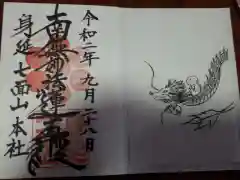 令和二年九月二十八日
南無妙法蓮華経
身延七面山本社